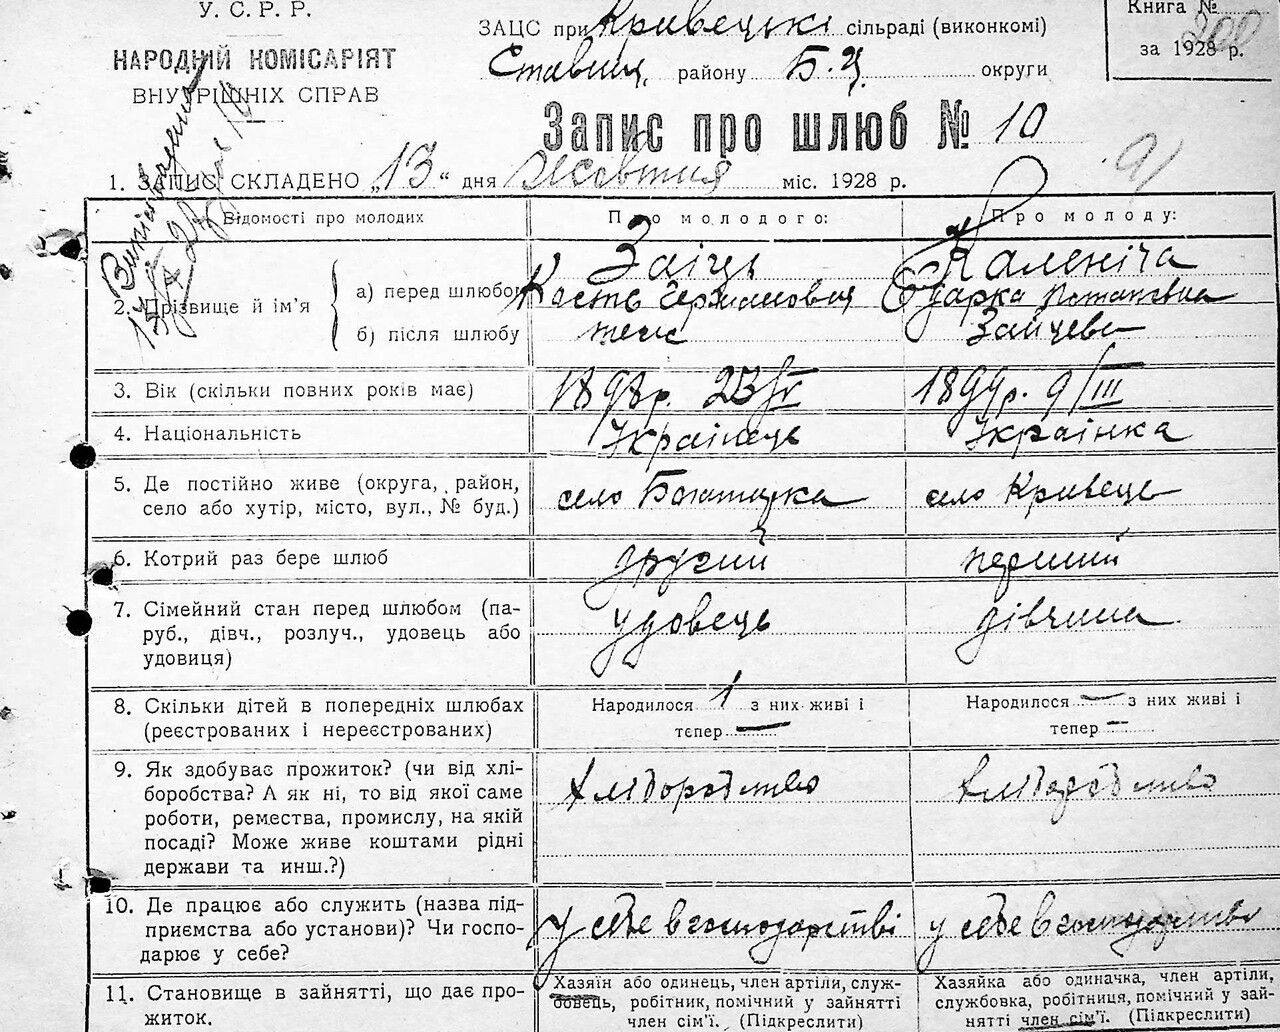 У. С. Р. Р.
НАРОДНІЙ КОМІСАРІЯТ
ВНУТРІШНІХ СПРАВ
ЗАЦС при Кривецькі сільраді (виконкомі)
Ставищ. району Б.Ц. округи
Книга №
за 1928 р.
200
Запис про шлюб № 10
91
1. ЗАПИС СКЛАДЕНО „13" дня Жовтня міс. 1928 р.
Відомості про молодих
Про молодого:
Про молоду:
2. Прізвище й ім'я
а) перед шлюбом
б) після шлюбу
Заіць
Кость Германович
теж
Каленіча
Одарка Потапівна
Зайцева
3. Вік (скільки повних років має)
1898р. 23/IV
1899р. 9/III
4. Національність
Українець
Українка
5. Де постійно живе (округа, район,
село або хутір, місто, вул., № буд.)
село Богатирка
село Кривець
6. Котрий раз бере шлюб
другий
перший
7. Сімейний стан перед шлюбом (па-
руб., дівч., розлуч., удовець або
удовиця)
удовець
дівчина
8. Скільки дітей в попередніх шлюбах
(реєстрованих і нереєстрованих)
Народилося 1 з них живі і
тепер —
Народилося — з них живі і
тепер —
9. Як здобуває прожиток? (чи від хлі-
боробства? А як ні, то від якої саме
роботи, ремества, промислу, на якій
посаді? Може живе коштами рідні
держави та инш.?)
Хліборобство
Хліборобство
10. Де працює або служить (назва під-
приємства або установи)? Чи госпо-
дарює у себе?
у себе в господарстві
у себе в господарстві
11. Становище в зайнятті, що дає про-
житок.
Хазяїн або одинець, член артіли, служ-
бовець, робітник, помічний у зайнятті
член сім'ї. (Підкреслити)
Хазяйка або одиначка, член артіли,
службовка, робітниця, помічний у зай-
нятті член сім'ї. (Підкреслити)